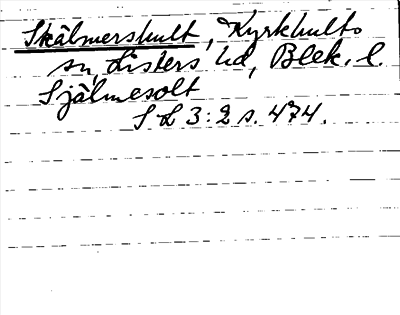 Skälmershult, Kyrkhults
sn, Listers hd, Blek. l.
Själmesolt
SD 3:2 s. 474.